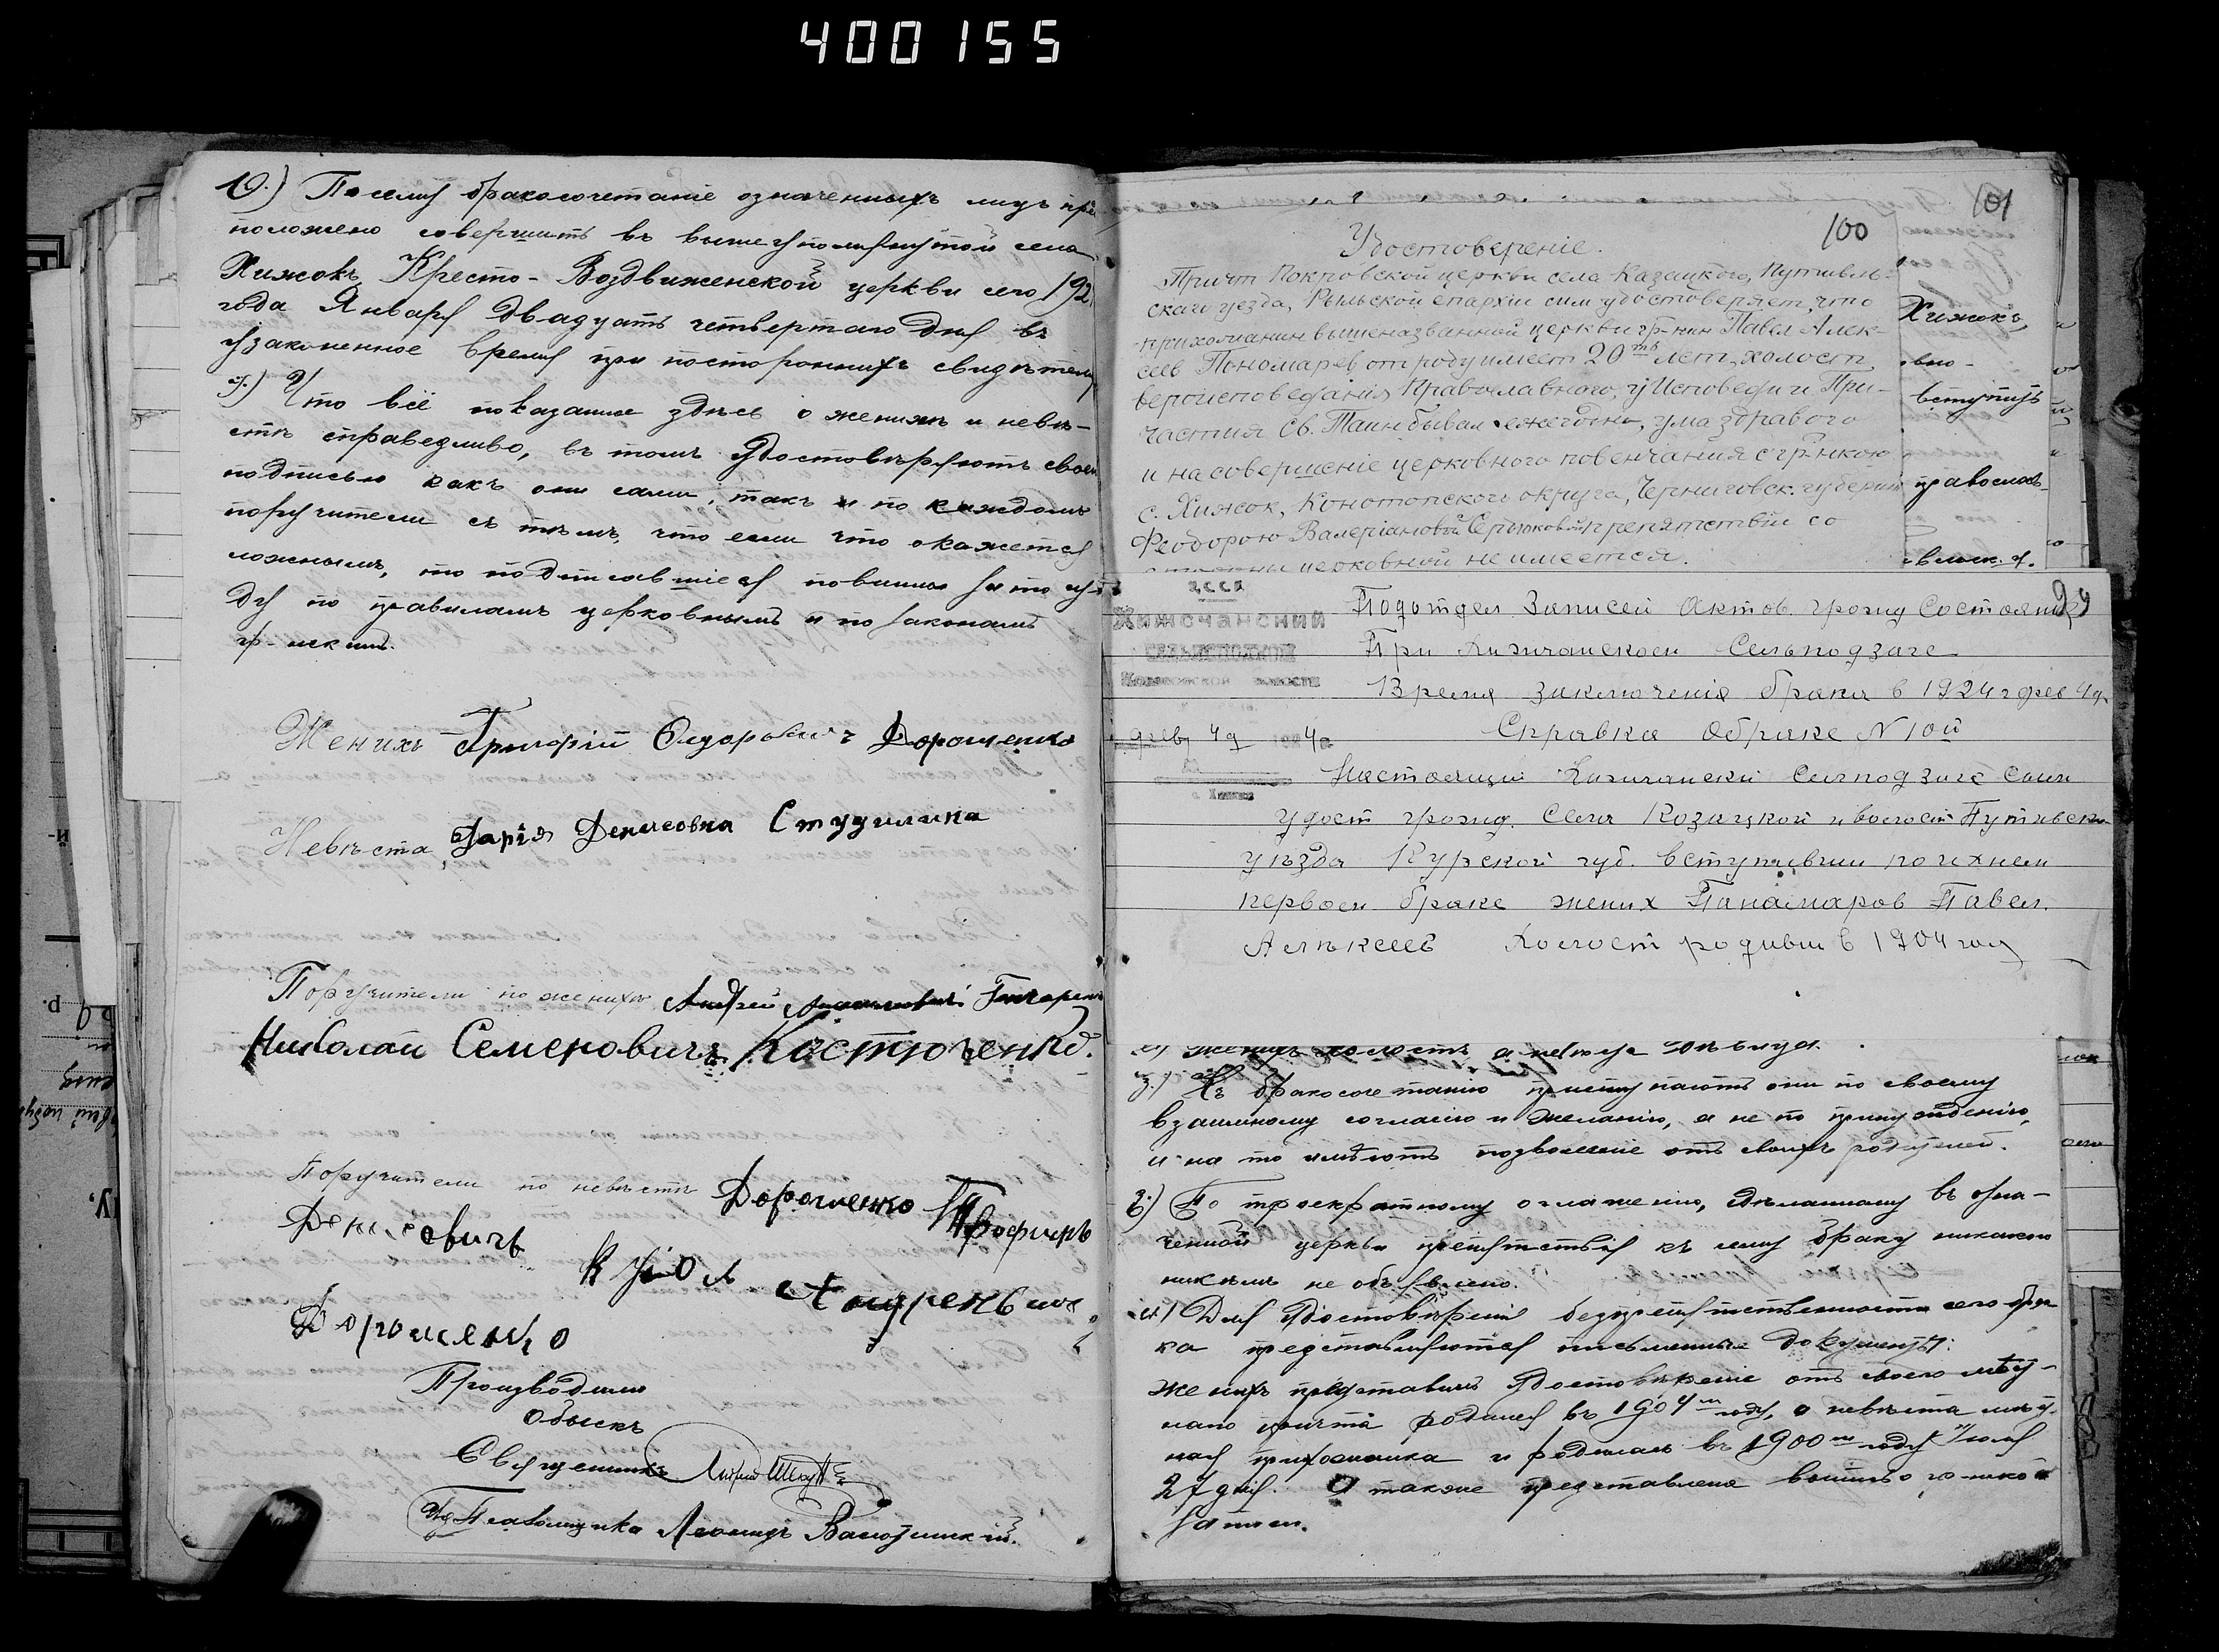 400155
10.) Посему бракосочетаніе означенныхъ лицъ пред
положено совершить въ вышеупомянутой села
Хижокъ, Кресто-Воздвиженской церкви сего 192
года Января двадцать четвертаго дня въ
узаконенное время при постороннихъ свидѣтеляхъ
Что всё показанное здѣсь о женихѣ и невѣ-
стѣ справедливо, въ томъ удостовѣряютъ своей
подписью какъ они сами, такъ и по каждомъ
поручители съ тѣмъ, что если что окажется
ложнымъ, то подписавшіеся повинны за то су-
ду по правиламъ церковнымъ и по законамъ
гр-нскимъ.
Женихъ Григорій Ѳедоровичъ Дорошенко
Невѣста Дарія Денисовна Студилина
Поручители по женихѣ Андрей
Николай Семеновичъ Костюченко.
Поручители по невѣстѣ Дорошенко Трофимъ
Денисовичъ
Андреевичъ
Дорошенко
Производили
обыскъ
Священникъ
Псаломщика Леонидъ
101
100
Удостоверение.
Причт Покровской церкви села Казацкого, Путивль-
скаго уезда, Рыльской епархіи сим удостоверяет, что
прихожанин вышеназванной церкви гр-нин Павел Алек-
сеев Пономарев от роду имеет 20ть лет, холост
вероисповедания Православного, у Исповеди и При-
частия Св. Таин бывал ежегодно, ума здравого
и на совершеніе церковного повенчания с гр-нкою
с. Хижок, Конотопского округа, Черниговск. губерніи
Феодорою Валеріановой Сердюковой препятствіи со
стороны церковной не имеется.
Хижокъ,
вно-
вступить
православ-
99
УССР
ХИЖЧАНСКИЙ
Подотдел Записей Актов. гражд Состояния
При Хижчанском Сельподзаге
Время заключенія брака в 1924 г фев 4 д.
Справка О браке N 10й
фев 4 д 1924 г.
с. Хижки
Настоящим Хижчански Селподзаге сим
удост гражд. Села Козацкой волост Путивск
уѣзда Курской губ. вступившим
первом браке жених Панамаров Павел.
Алѣксеев Холост родивш в 1904 году
женихъ холостъ, а невѣста дѣвица.
7.) Къ бракосочетанію приступаютъ они по своему
взаимному согласію и желанію, а не по принужденію,
и на то имѣютъ позволеніе отъ своихъ родителей.
8.) По троекратному оглашенію, сдѣланному въ озна-
ченной церкви препятствія къ сему браку никакого
никѣмъ не объявлено.
Для удостовѣренія безпрепятственности сего бра-
ка представляются письменные документы:
женихъ представилъ удостовѣреніе отъ своего мѣст-
наго причта родился въ 1904м году, а невѣста мѣст
ная прихожанка и родилась въ 1900м году Іюля
27 дня. А также представлена